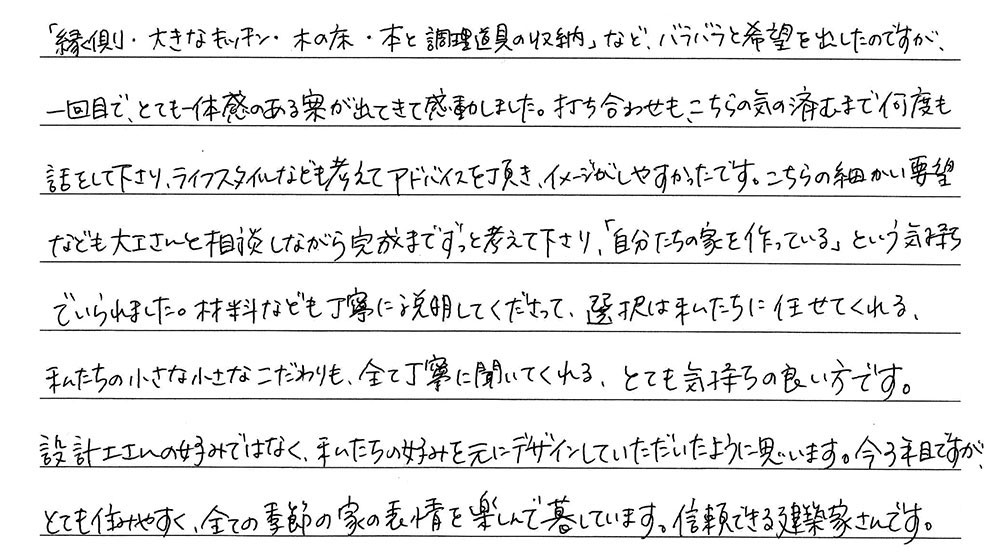 「縁側・大きなキッチン・木の床・本と調理道具の収納」など、バラバラと希望を出したのですが、
一回目で、とても一体感のある案が出てきて感動しました。打ち合わせも、こちらの気の済むまで何度も
話をして下さり、ライフスタイルなども考えてアドバイスを頂き、イメージがしやすかったです。こちらの細かい要望
なども大工さんと相談しながら完成までずっと考えて下さり、「自分たちの家を作っている」という気持ち
でいられました。材料なども丁寧に説明してくださって、選択は私たちに任せてくれる、
私たちの小さな小さなこだわりも、全て丁寧に聞いてくれる、とても気持ちの良い方です。
設計士さんの好みではなく、私たちの好みを元にデザインしていただいたように思います。今3年目ですが、
とても住みやすく、全ての季節の家の表情を楽しんで暮しています。信頼できる建築家さんです。